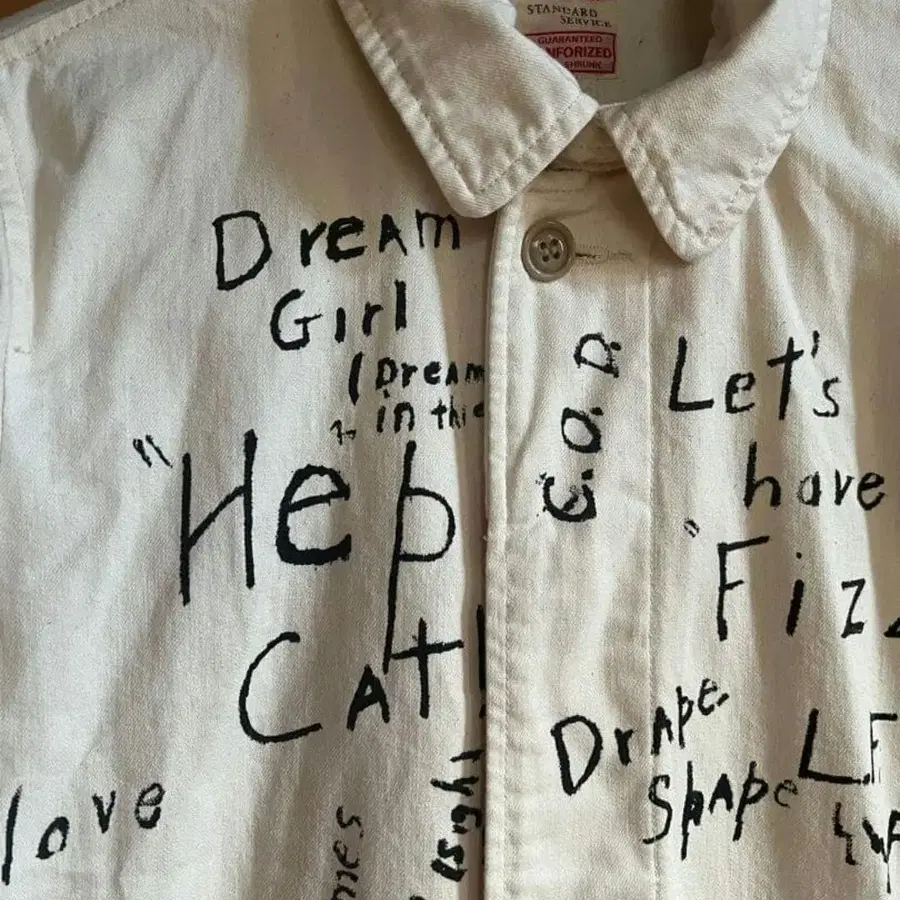 STANDARD
SERVICE
GUARANTEED
NFORIZED
SHRUNK
DreAm
Girl
(DreAm
in the
"Hep
CAt
love
G.O.D.
Let's
have
"Fiz
DrApe
SHApe